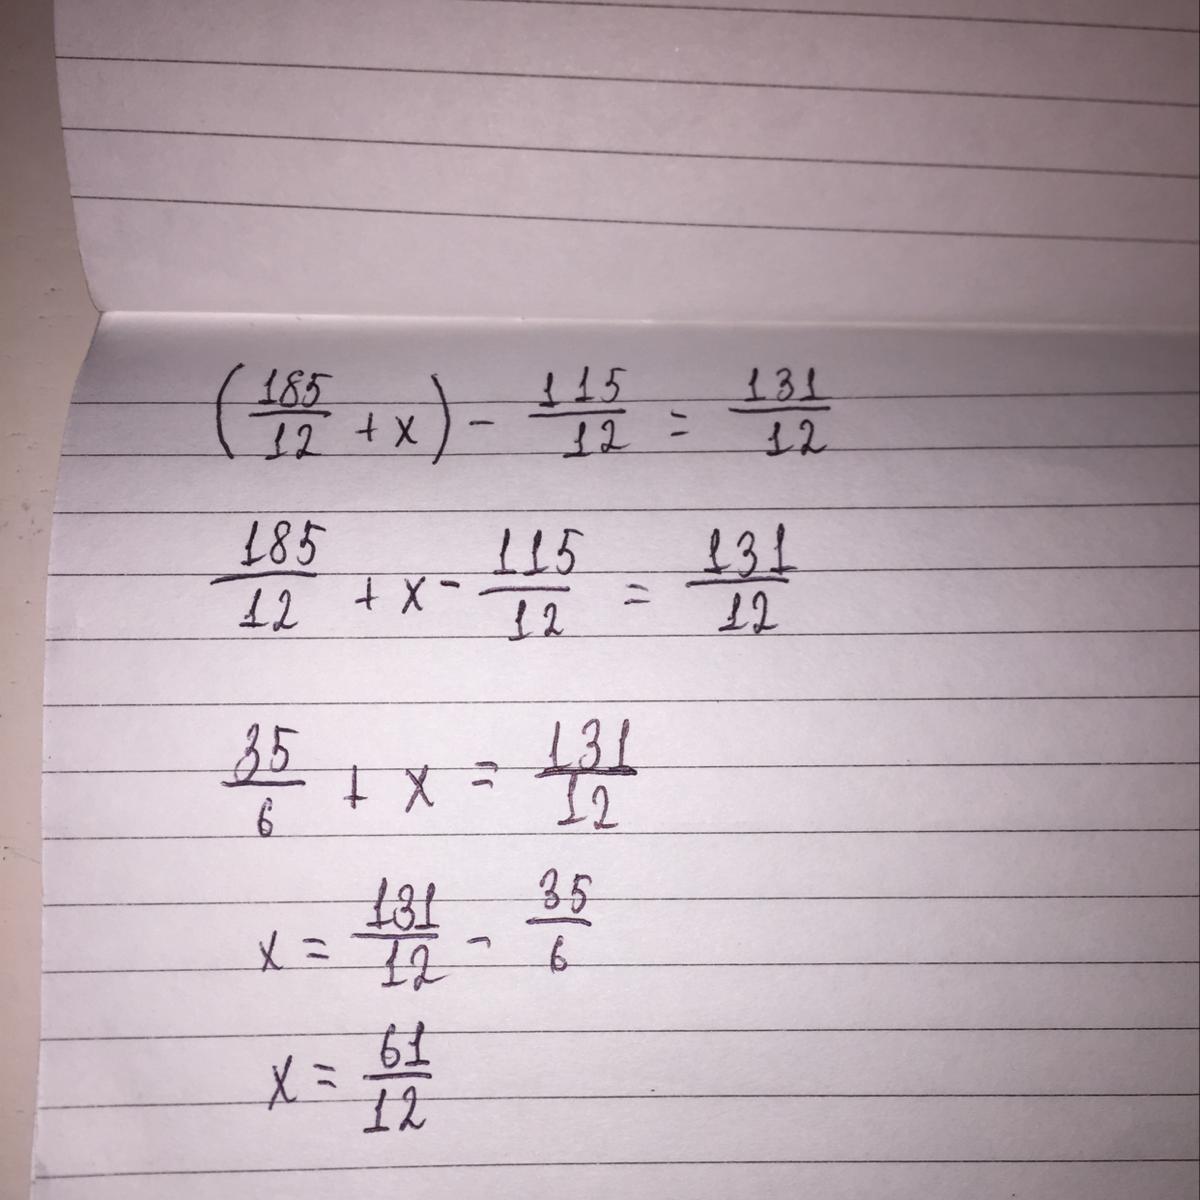 (185/12 + x) - 115/12 = 131/12
185/12 + x - 115/12 = 131/12
35/6 + x = 131/12
x = 131/12 - 35/6
x = 61/12